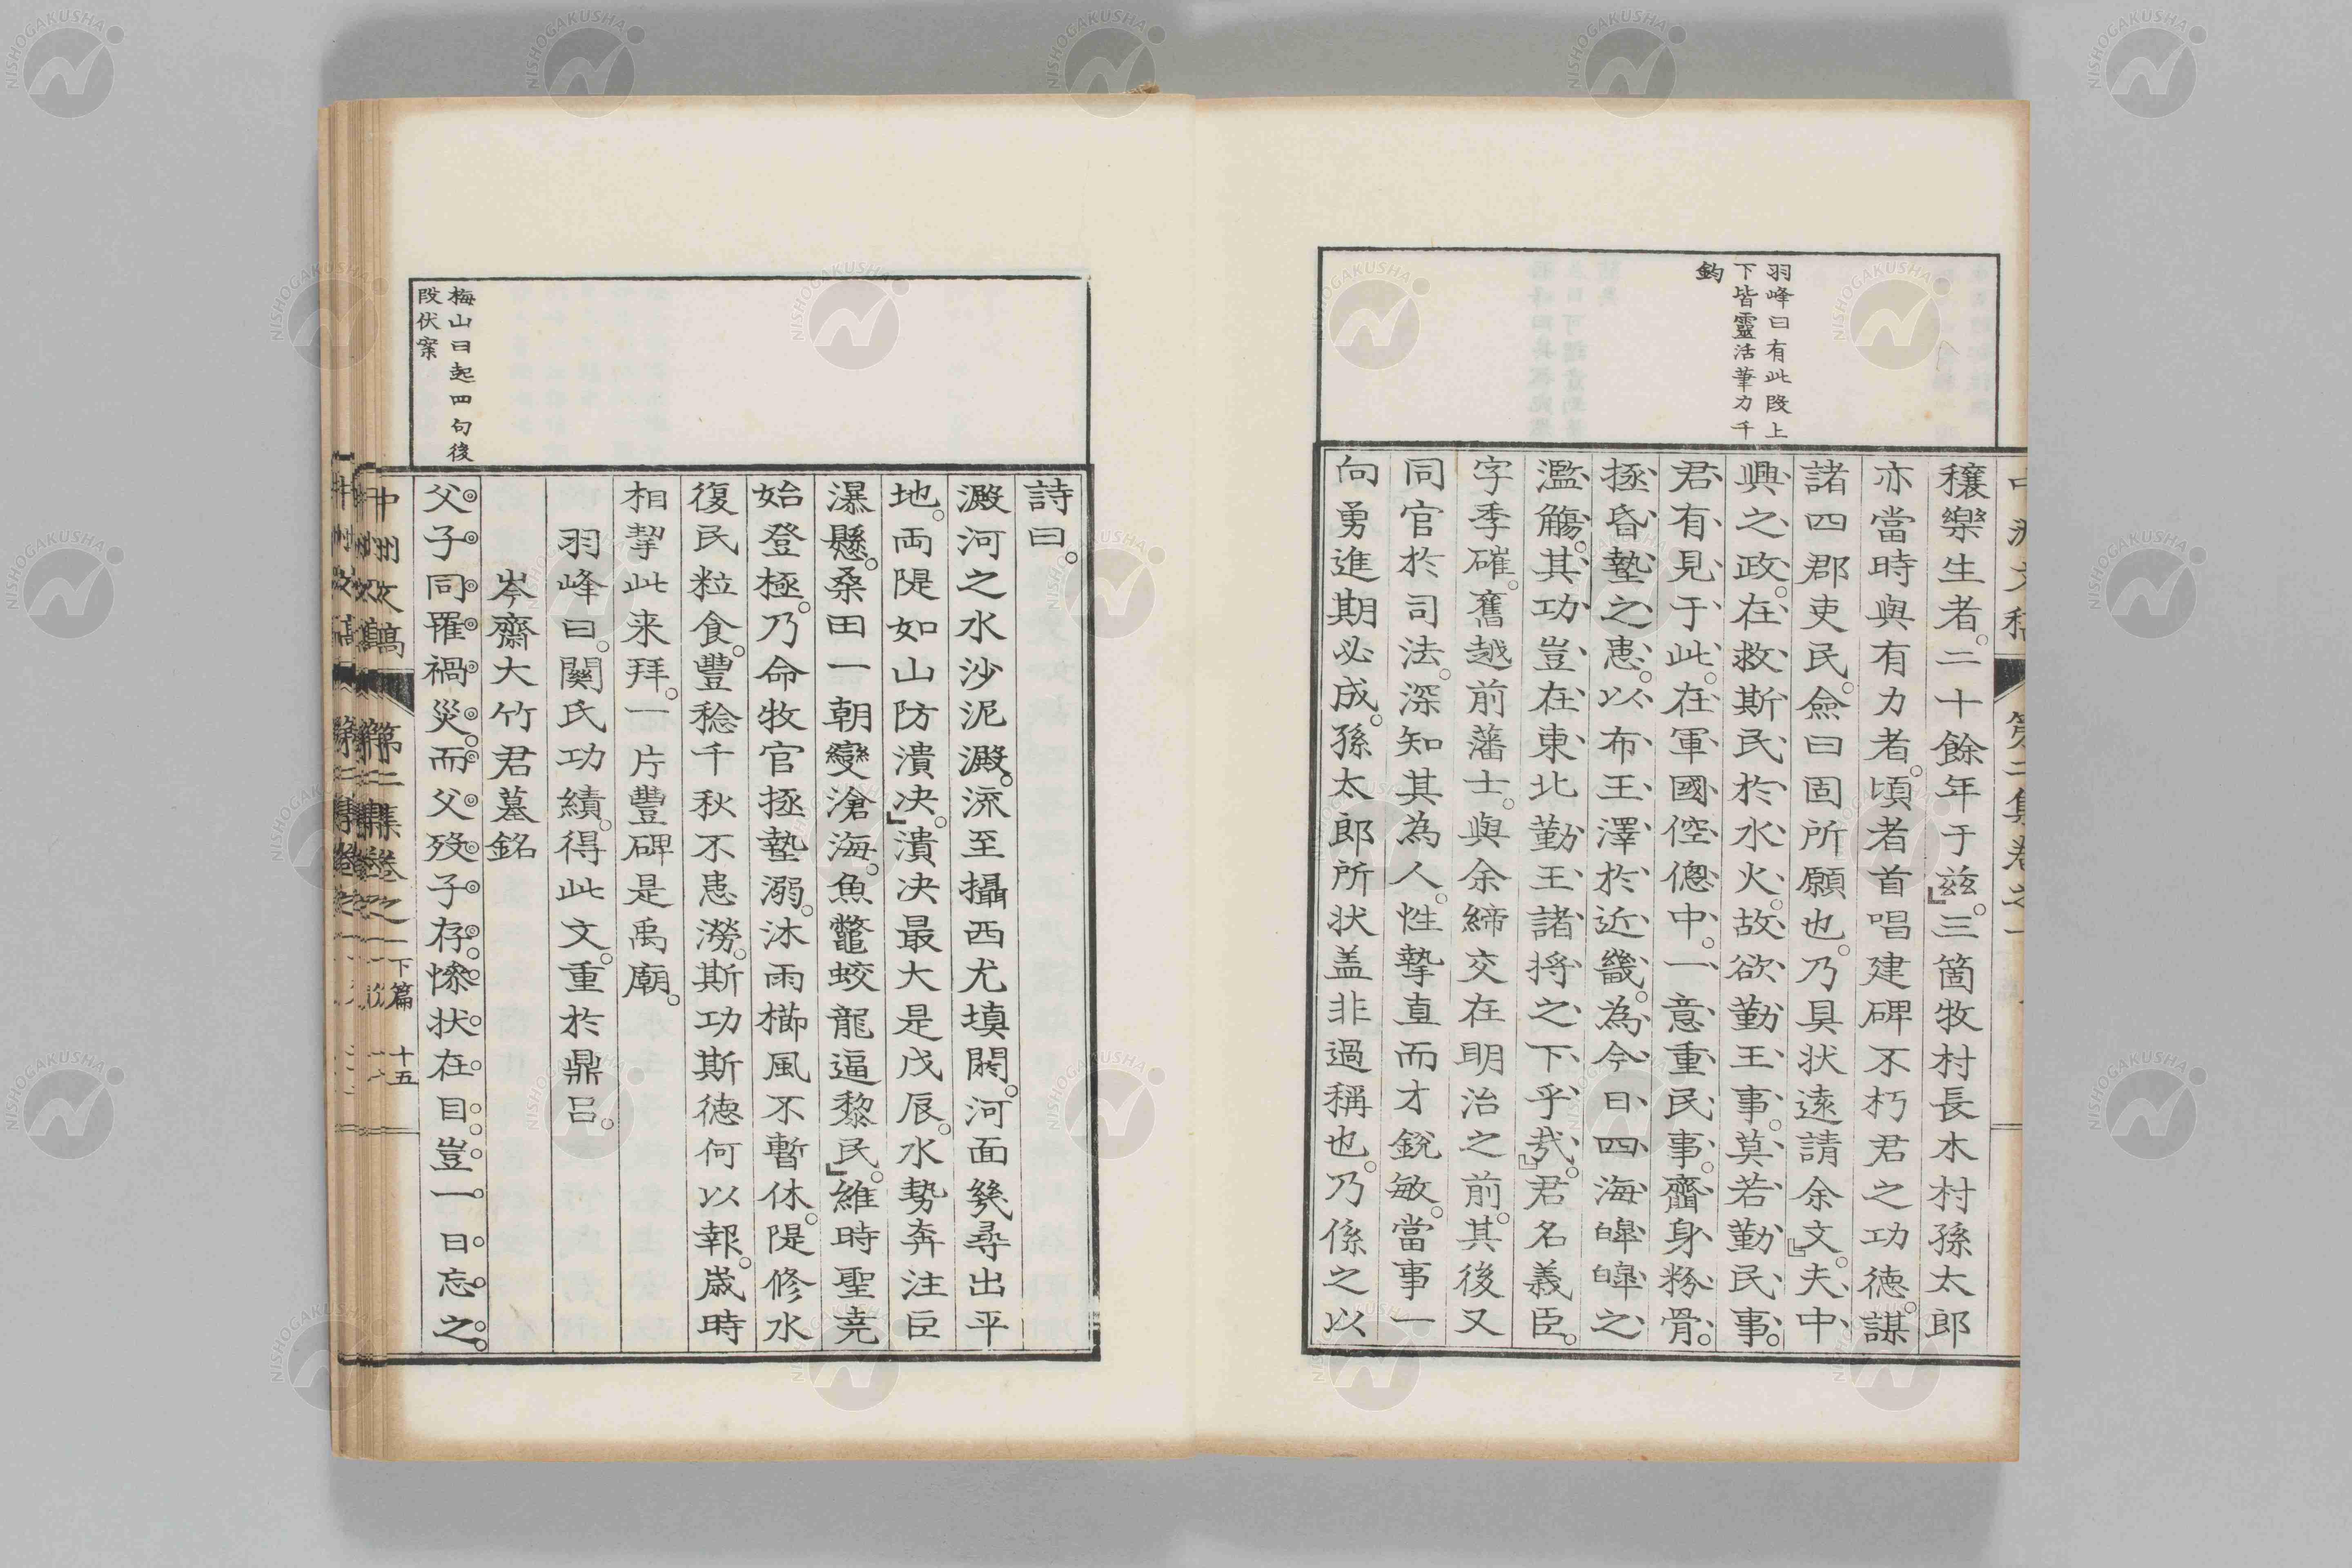 羽峰曰有此段上
下皆靈活筆力千
鈞
穰樂生者。二十餘年于茲。三箇牧村長木村孫太郎
亦當時與有力者。頃者首唱建碑不朽君之功德。謀
諸四郡吏民。僉曰固所願也。乃具状遠請余文。夫中
興之政。在救斯民於水火。故欲勤王事。莫若勤民事。
君有見于此。在軍國倥傯中。一意重民事。齏身粉骨。
拯昏墊之患。以布王澤於近畿。為今日四海皞皞之
濫觴。其功豈在東北勤王諸將之下乎哉。君名義臣。
字季確。舊越前藩士。與余締交在明治之前。其後又
同官於司法。深知其為人。性摯直而才銳敏。當事一
向勇進期必成。孫太郎所状盖非過稱也。乃係之以
詩曰。
澱河之水沙泥澱。流至攝西尤填閼。河面幾尋出平
地。両隄如山防潰决。潰决最大是戊辰。水勢奔注臣
瀑懸。桑田一朝變滄海。魚鼈蛟龍逼黎民。維時聖堯
始登極。乃命牧官拯墊溺。沐雨櫛風不暫休。隄修水
復民粒食。豐稔千秋不患澇。斯功斯德何以報。歲時
相挈此来拜。一片豐碑是禹廟。
羽峰曰。關氏功績。得此文。重於鼎呂。
岑齋大竹君墓銘
父子同罹禍災。而父歿子存。慘状在目。豈一日忘之。
梅山曰起四句後
段伏案
中州文稿
第二集卷之一
下篇
十五